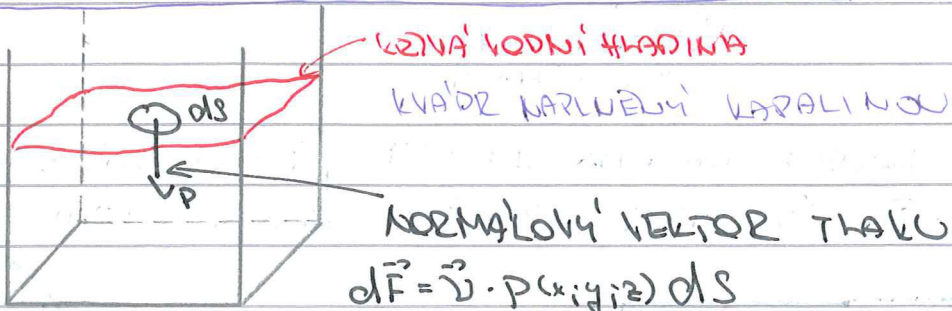 KŘIVÁ VODNÍ HLADINA
KVÁDR NAPLNĚNÝ KAPALINOU
dS
P
NORMÁLOVÝ VEKTOR TLAKU
dF⃗ = ν⃗ · p(x;y;z) dS